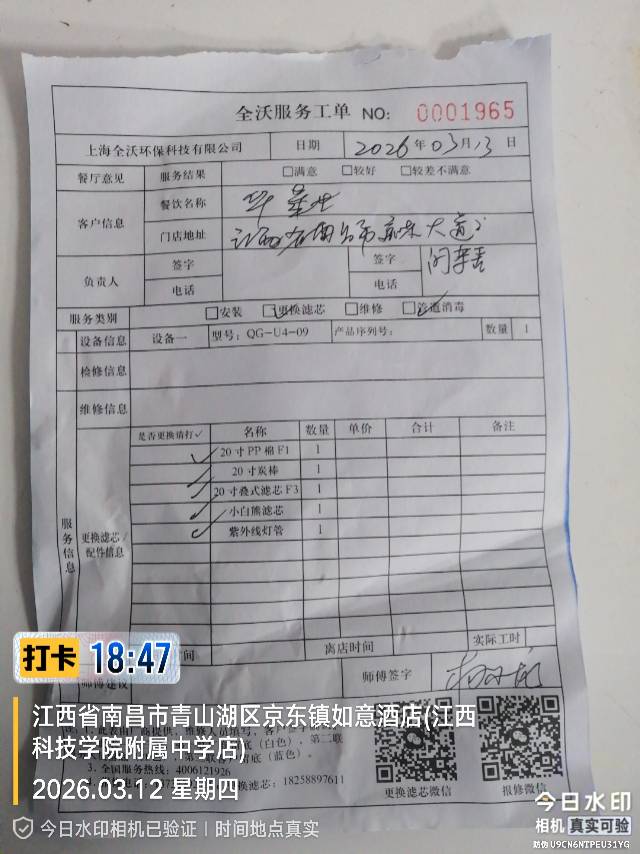 全沃服务工单 NO: 0001965
上海全沃环保科技有限公司 日期 2026年03月13日
餐厅意见 服务结果 □满意 □较好 □较差不满意
客户信息 餐饮名称 华莱士
门店地址 江西省南昌市京东大道
负责人 签字 签字
电话 电话
服务类别 □安装 ☑更换滤芯 □维修 ☑管道消毒
设备信息 设备一 型号: QG-U4-09 产品序列号: 数量 1
检修信息
维修信息
服务信息 更换滤芯/配件信息
是否更换请打✓ 名称 数量 单价 合计 备注
✓ 20寸PP棉F1 1
✓ 20寸炭棒 1
✓ 20寸叠式滤芯F3 1
✓ 小白熊滤芯 1
✓ 紫外线灯管 1
间 离店时间 实际工时
师傅建议 师傅签字
打卡 18:47
江西省南昌市青山湖区京东镇如意酒店(江西
科技学院附属中学店)
2026.03.12 星期四
底(白色)、第二联
底(蓝色)。
3.全国服务热线: 4006121926
换滤芯: 18258897611
更换滤芯微信 报修微信
今日水印相机已验证 | 时间地点真实
今日水印
相机 真实可验
防伪 U9CN6NTPEU31YG